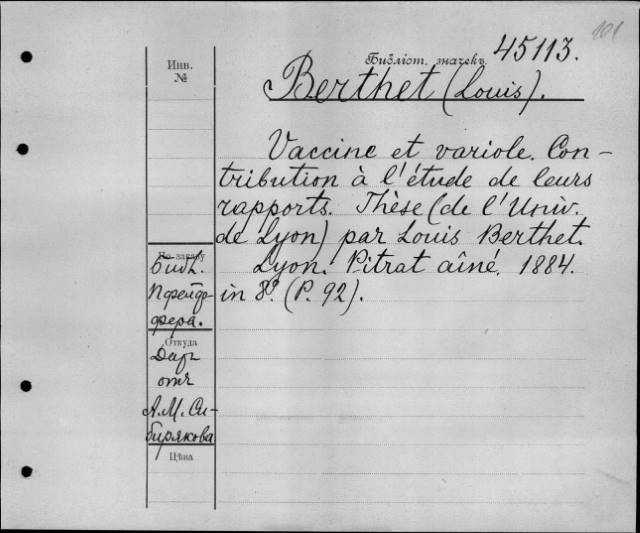 101
Инв.
№
Библіот. значекъ 45113.
Berthet (Louis).
Vaccine et variole. Con-
tribution à l'étude de leurs
rapports. Thèse (de l'Univ.
de Lyon) par Louis Berthet.
Lyon. Pitrat aîné. 1884.
in 8º. (P. 92).
По заказу
Библ.
Пфейф-
фера.
Откуда
Даръ
отъ
А.М. Си-
бирякова
Цѣна